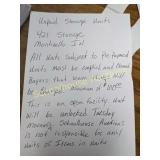 Unpaid Storage Units
421 Storage
Monticello In
All Units Subject to Pre Payment
Units must be emptied and Cleaned
Buyers that leave trash will
be Charged minimum of $100.00
This is an open facility that will
be unlocked Tuesday
Morning. Schoolhouse Auctions
is not responsible for units
of Items in Units